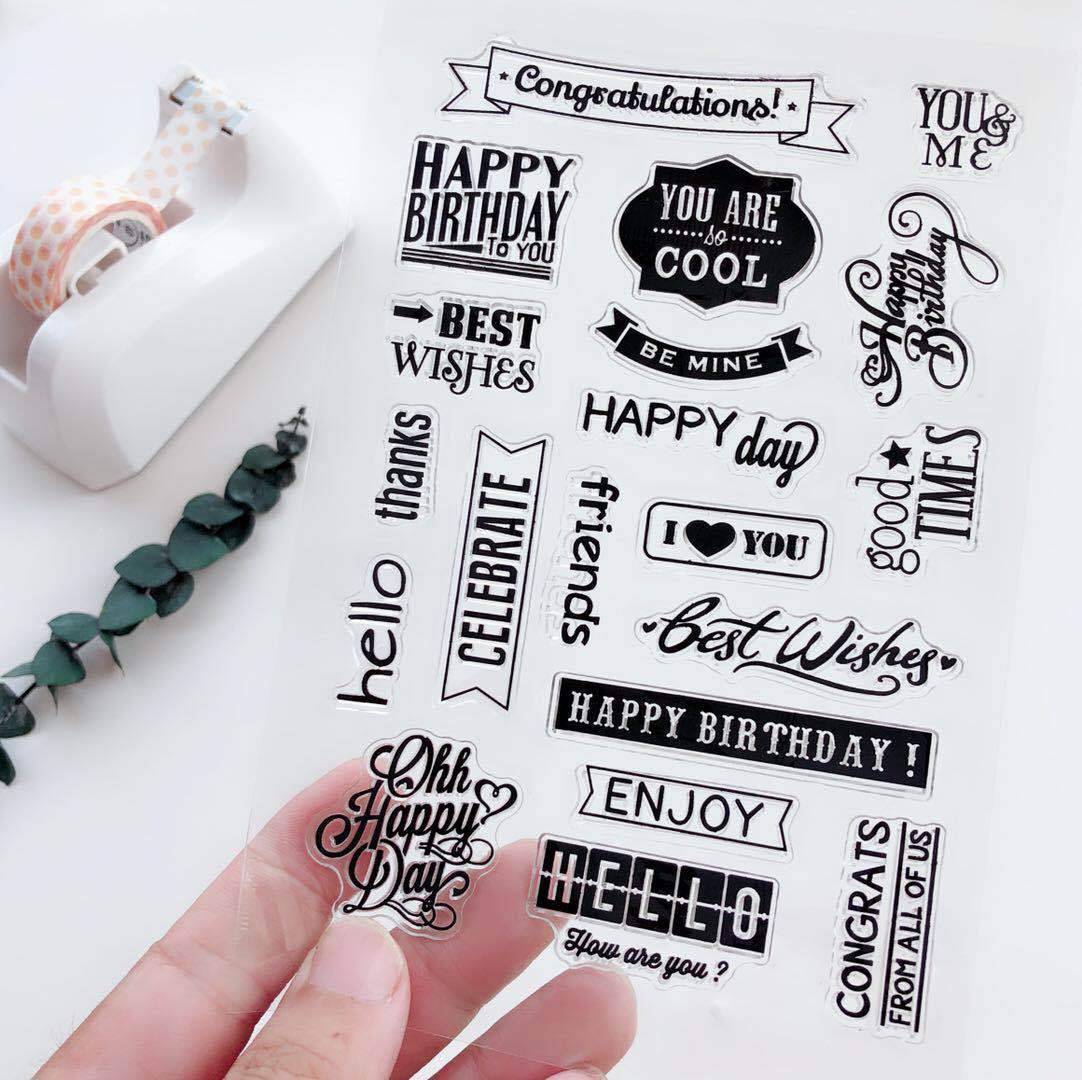 Congratulations!
YOU &
ME
HAPPY
BIRTHDAY
TO YOU
YOU ARE
so
COOL
Happy
Birthday
BEST
WISHES
BE MINE
HAPPY day
thanks
CELEBRATE
friends
I ♥ YOU
good
TIMES
hello
Best Wishes
HAPPY BIRTHDAY !
Ohh
Happy
Day
ENJOY
HELLO
How are you ?
CONGRATS
FROM ALL OF US